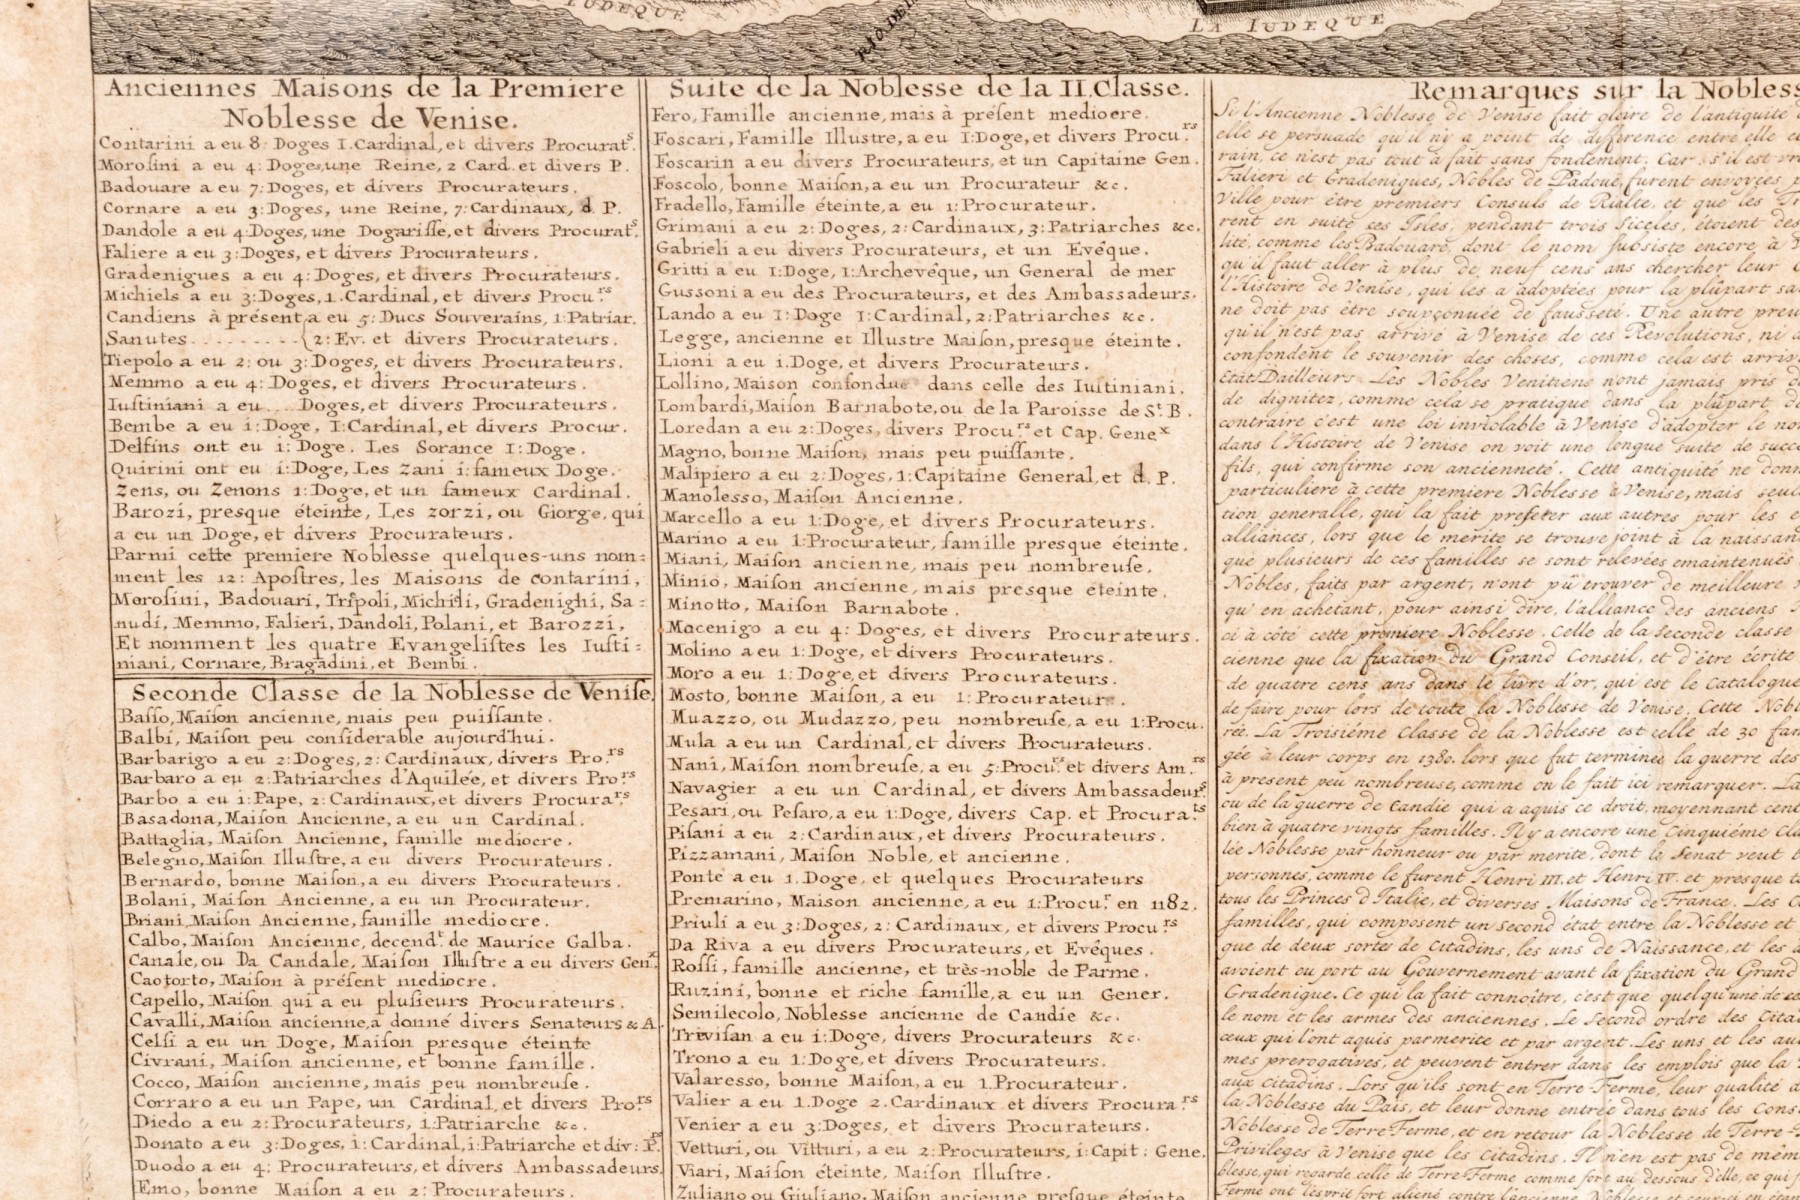 IUDEQUE
LA IUDEQUE
Anciennes Maisons de la Premiere
Noblesse de Venise.
Contarini a eu 8: Doges 1.Cardinal, et divers Procurat.s
Morosini a eu 4: Doges, une Reine, 2 Card. et divers P.
Badouare a eu 7: Doges, et divers Procurateurs.
Cornare a eu 3: Doges, une Reine, 7: Cardinaux, d. P.
Dandole a eu 4: Doges, une Dogarisse, et divers Procurat.s
Faliere a eu 3: Doges, et divers Procurateurs.
Gradenigues a eu 4: Doges, et divers Procurateurs.
Michiels a eu 3: Doges, 1. Cardinal, et divers Procu.rs
Candiens à présent a eu 5: Ducs Souverains, 1: Patriar.
Sanutes . . . . . . . . . { 2: Ev. et divers Procurateurs.
Tiepolo a eu 2: ou 3: Doges, et divers Procurateurs.
Memmo a eu 4: Doges, et divers Procurateurs.
Iustiniani a eu .... Doges, et divers Procurateurs.
Bembe a eu 1: Doge, 1: Cardinal, et divers Procur.
Delfins ont eu 1: Doge. Les Sorance 1: Doge.
Quirini ont eu 1: Doge, Les Zani 1: fameux Doge.
Zens, ou Zenons 1: Doge, et un fameux Cardinal.
Barozi, presque éteinte, Les Zorzi, ou Giorge, qui
a eu un Doge, et divers Procurateurs.
Parmi cette premiere Noblesse quelques-uns nom=
ment les 12: Apostres, les Maisons de Contarini,
Morosini, Badouari, Tripoli, Michili, Gradenighi, Sa=
nudi, Memmo, Falieri, Dandoli, Polani, et Barozzi,
Et nomment les quatre Evangelistes les Iusti=
niani, Cornare, Bragadini, et Bembi.
Seconde Classe de la Noblesse de Venise.
Basso, Maison ancienne, mais peu puissante.
Balbi, Maison peu considerable aujourd'hui.
Barbarigo a eu 2: Doges, 2: Cardinaux, divers Pro.rs
Barbaro a eu 2: Patriarches d'Aquilée, et divers Pro.rs
Barbo a eu 1: Pape, 2: Cardinaux, et divers Procura.rs
Basadona, Maison Ancienne, a eu un Cardinal.
Battaglia, Maison Ancienne, famille mediocre.
Belegno, Maison Illustre, a eu divers Procurateurs.
Bernardo, bonne Maison, a eu divers Procurateurs.
Bolani, Maison Ancienne, a eu un Procurateur.
Briani, Maison Ancienne, famille mediocre.
Calbo, Maison Ancienne, decend.t de Maurice Galba.
Canale, ou Da Candale, Maison Illustre a eu divers Gen.x
Caotorto, Maison à présent mediocre.
Capello, Maison qui a eu plusieurs Procurateurs.
Cavalli, Maison ancienne, a donné divers Senateurs & A.
Celsi a eu un Doge, Maison presque éteinte
Civrani, Maison ancienne, et bonne famille.
Cocco, Maison ancienne, mais peu nombreuse.
Corraro a eu un Pape, un Cardinal, et divers Pro.rs
Diedo a eu 2: Procurateurs, 1: Patriarche &c.
Donato a eu 3: Doges, 1: Cardinal, 1: Patriarche et div: P.rs
Duodo a eu 4: Procurateurs, et divers Ambassadeurs.
Emo, bonne Maison a eu 2: Procurateurs.
Suite de la Noblesse de la II. Classe.
Fero, Famille ancienne, mais à présent mediocre.
Foscari, Famille Illustre, a eu 1: Doge, et divers Procu.rs
Foscarin a eu divers Procurateurs, et un Capitaine Gen.
Foscolo, bonne Maison, a eu un Procurateur &c.
Fradello, Famille éteinte, a eu 1: Procurateur.
Grimani a eu 2: Doges, 2: Cardinaux, 3: Patriarches &c.
Gabrieli a eu divers Procurateurs, et un Evéque.
Gritti a eu 1: Doge, 1: Archevéque, un General de mer
Gussoni a eu des Procurateurs, et des Ambassadeurs.
Lando a eu 1: Doge 1: Cardinal, 2: Patriarches &c.
Legge, ancienne et Illustre Maison, presque éteinte.
Lioni a eu 1. Doge, et divers Procurateurs.
Lollino, Maison confondue dans celle des Iustiniani.
Lombardi, Maison Barnabote, ou de la Paroisse de S.t B.
Loredan a eu 2: Doges, divers Procu.rs et Cap. Gene.x
Magno, bonne Maison, mais peu puissante.
Malipiero a eu 2: Doges, 1: Capitaine General, et d. P.
Manolesso, Maison Ancienne.
Marcello a eu 1: Doge, et divers Procurateurs.
Marino a eu 1: Procurateur, famille presque éteinte.
Miani, Maison ancienne, mais peu nombreuse.
Minio, Maison ancienne, mais presque éteinte.
Minotto, Maison Barnabote.
Mocenigo a eu 4: Doges, et divers Procurateurs.
Molino a eu 1: Doge, et divers Procurateurs.
Moro a eu 1: Doge, et divers Procurateurs.
Mosto, bonne Maison, a eu 1: Procurateur.
Muazzo, ou Mudazzo, peu nombreuse, a eu 1: Procu.
Mula a eu un Cardinal, et divers Procurateurs.
Nani, Maison nombreuse, a eu 5: Procu.rs et divers Am.rs
Navagier a eu un Cardinal, et divers Ambassadeur.s
Pesari, ou Pesaro, a eu 1: Doge, divers Cap. et Procura.ts
Pisani a eu 2: Cardinaux, et divers Procurateurs.
Pizzamani, Maison Noble, et ancienne.
Ponte a eu 1. Doge, et quelques Procurateurs
Premarino, Maison ancienne, a eu 1: Procu.r en 1182.
Priuli a eu 3: Doges, 2: Cardinaux, et divers Procu.rs
Da Riva a eu divers Procurateurs, et Evéques.
Rossi, famille ancienne, et très-noble de Parme.
Ruzini, bonne et riche famille, a eu un Gener.
Semilecolo, Noblesse ancienne de Candie &c.
Trevisan a eu 1: Doge, divers Procurateurs &c.
Trono a eu 1: Doge, et divers Procurateurs.
Valaresso, bonne Maison, a eu 1. Procurateur.
Valier a eu 1. Doge 2. Cardinaux et divers Procura.rs
Venier a eu 3: Doges, et divers Procurateurs.
Vetturi, ou Vitturi, a eu 2: Procurateurs, 1: Capit: Gene.
Viari, Maison éteinte, Maison Illustre.
Zuliano ou Giuliano, Maison ancienne presque éteinte
Remarques sur la Nobless
Si l'Ancienne Noblesse de Venise fait gloire de l'antiquité
elle se persuade qu'il n'y a point de difference entre elle
rain, ce n'est pas tout à fait sans fondement. Car s'il est
Falieri et Gradenigues, Nobles de Padoue, furent envoyées
Ville pour être premiers Consuls de Rialte, et que les
rent en suite ces Isles, pendant trois Siecles, étoient des
lité, comme les Badouare, dont le nom subsiste encore à
qu'il faut aller à plus de neuf cens ans chercher leur
l'Histoire de Venise, qui les a adoptées pour la plûpart
ne doit pas être soupçonnée de fausseté. Une autre
qu'il n'est pas arrivé à Venise de ces Revolutions, ni
confondent le souvenir des choses, comme cela est
Etat Dailleurs. Les Nobles Venitiens n'ont jamais pris
de dignitez, comme cela se pratique dans la plûpart
contraire c'est une loi inviolable à Venise d'adopter le
dans l'Histoire de Venise on voit une longue suite de
fils, qui confirme son ancienneté. Cette antiquité ne
particuliere à cette premiere Noblesse à Venise, mais
tion generalle, qui la fait preferer aux autres pour les
alliances, lors que le merite se trouve joint à la
que plusieurs de ces familles se sont relevées emaintenués
Nobles, faits par argent, n'ont pû trouver de meilleure
qu'en achetant, pour ainsi dire, l'alliance des anciens
ci à côté cette premiere Noblesse. Celle de la seconde classe
cienne que la fixation du Grand Conseil, et d'être écrite
de quatre cens ans dans le livre d'or, qui est le Catalogue
de faire pour lors de toute la Noblesse de Venise. Cette
rée. La Troisiéme Classe de la Noblesse est celle de 30
gée à leur corps en 1380. lors que fut terminée la guerre des
à present peu nombreuse, comme on le fait ici remarquer.
ou de la guerre de Candie qui a aquis ce droit, moyennant cent
bien à quatre vingts familles. Il y a encore une Cinquiéme
lée Noblesse par honneur ou par merite, dont le Senat veut
personnes, comme le furent Henri III. et Henri IV. et presque
tous les Princes d'Italie, et diverses Maisons de France. Les
familles, qui composent un second état entre la Noblesse et
que de deux sortes de Citadins, les uns de Naissance, et les
avoient eu port au Gouvernement avant la fixation du Grand
Gradenigue. Ce qui la fait connoître, c'est que quelqu'une de
le nom et les armes des anciennes. Le second ordre des
ceux qui l'ont aquis par merite et par argent. Les uns et les
mes prerogatives, et peuvent entrer dans les emplois que la
aux Citadins. Lors qu'ils sont en Terre-Ferme, leur qualité
la Noblesse du Païs, et leur donne entrée dans tous les
Noblesse de Terre-Ferme, et en retour la Noblesse de Terre-
Privileges à Venise que les Citadins. Il n'en est pas de
blesse, qui regarde celle de Terre-Ferme comme fort au dessous d'elle, ce qui
Ferme ont l'esprit fort aliené contre l'ancienne Noblesse